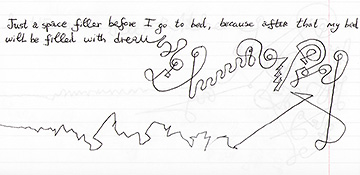 Just a space filler before I go to bed, because after that my bed
will be filled with dreams